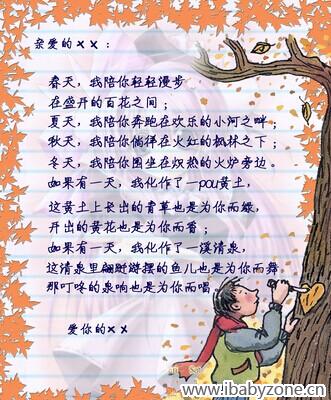 亲爱的××：
春天，我陪你轻轻漫步
在盛开的百花之间；
夏天，我陪你奔跑在欢乐的小河之畔；
秋天，我陪你徜徉在火红的枫林之下；
冬天，我陪你围坐在炽热的火炉旁边。
如果有一天，我化作了一pou黄土，
这黄土上长出的青草也是为你而绿，
开出的黄花也是为你而香；
如果有一天，我化作了一溪清泉，
这清泉里翩翩游摆的鱼儿也是为你而舞
那叮咚的泉响也是为你而唱
爱你的××
www.ibabyzone.cn